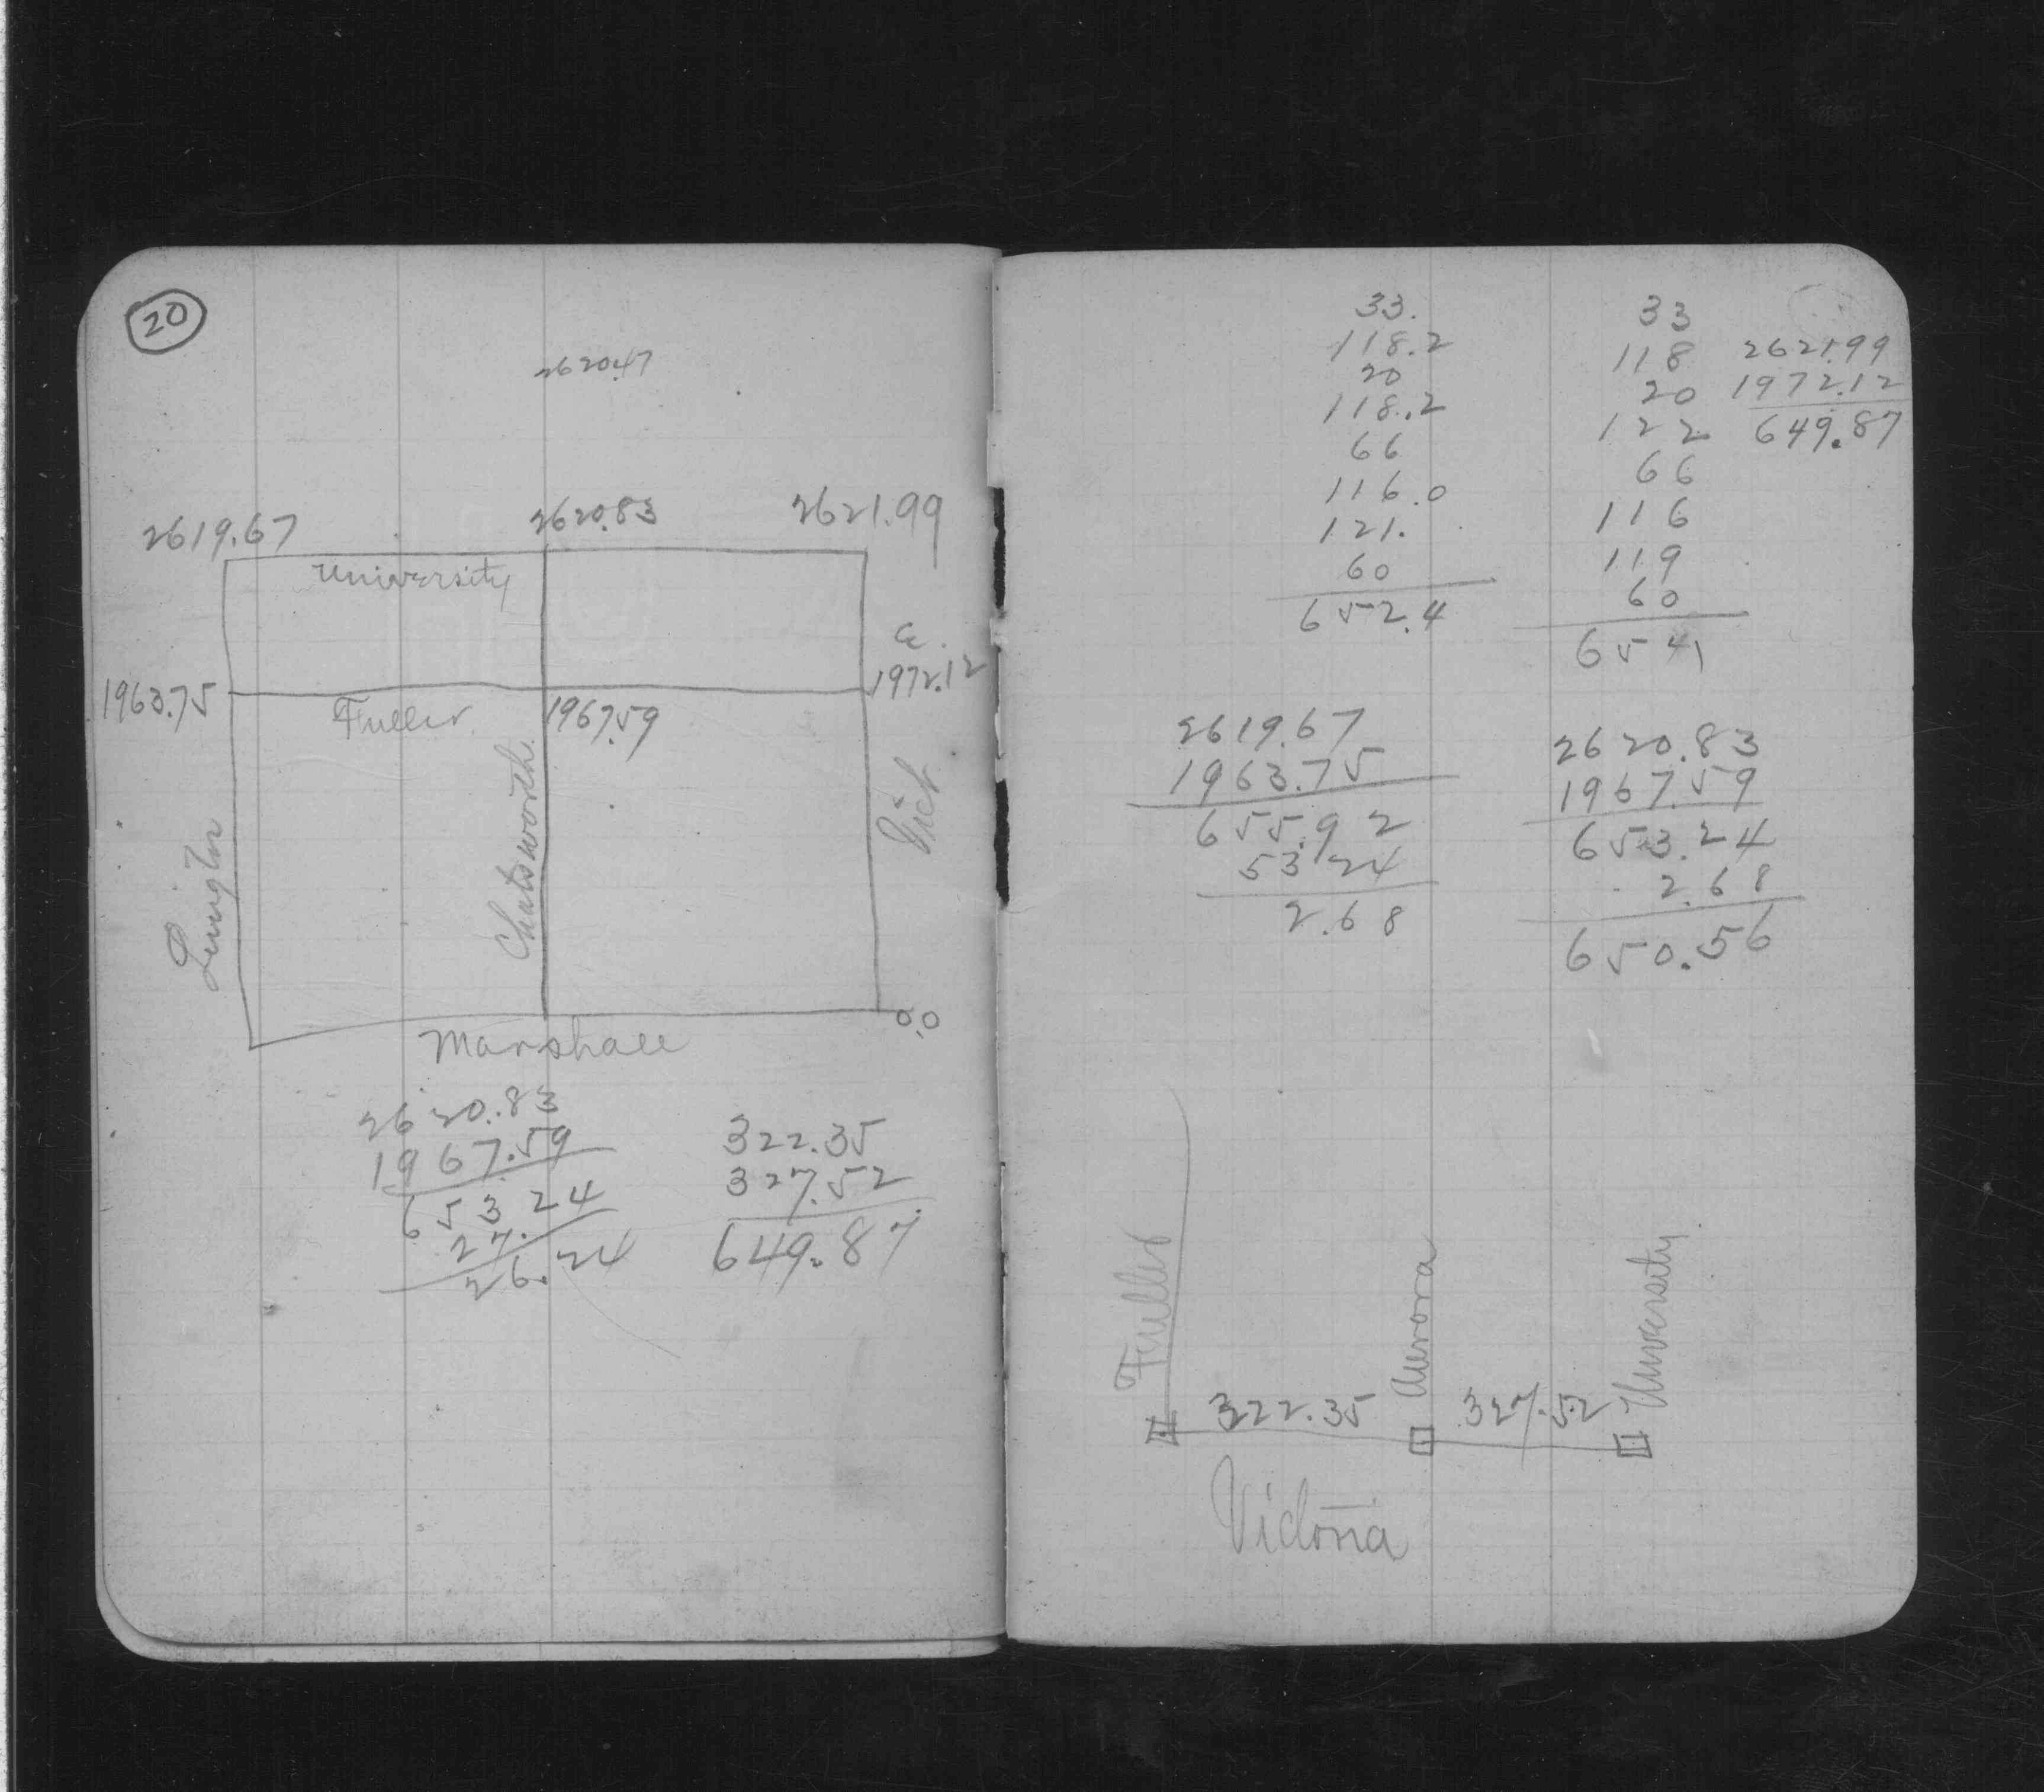 20
2620.47
2619.67
2620.83
2621.99
University
1963.75
Fuller
1967.59
1972.12
Chatsworth
Vict
0.0
Marshall
2620.83
1967.59
653.24
27.
26.24
322.35
327.52
649.87
33.
118.2
20
118.2
66
116.0
121.
60
652.4
33
118
20
122
66
116
119
60
654
2621.99
1972.12
649.87
2619.67
1963.75
655.92
53 24
2.68
2620.83
1967.59
653.24
2.68
650.56
Fuller
322.35
Aurora
327.52
University
Victoria